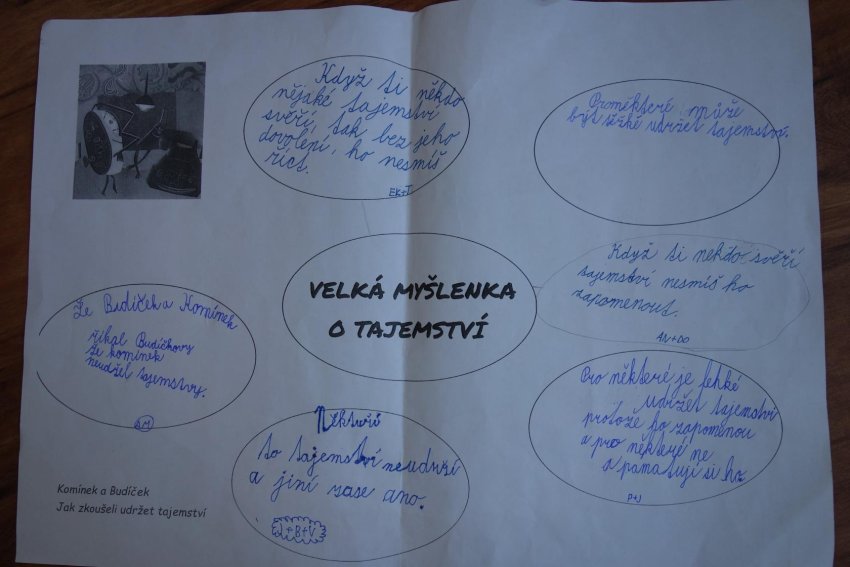 Když ti někdo
nějaké tajemství
svěří, tak bez jeho
dovolení, ho nesmíš
říct.
EK+T
Proněkteré může
být těžké udržet tajemství.
VELKÁ MYŠLENKA
O TAJEMSTVÍ
Když ti nekdo svěří
tajemství nesmíš ho
zapomenout.
AN+DO
Že Budíček a Komínek
říkal Budíčkovy
že komínek
neudžel tajemstvy.
Někteří
to tajemství neudrží
a jiní zase ano.
EJ+B+V
Pro některé je lehké
udržet tajemství
protože ho zapomenou
a pro některé ne
a pamatují si ho.
P+J
Komínek a Budíček
Jak zkoušeli udržet tajemství